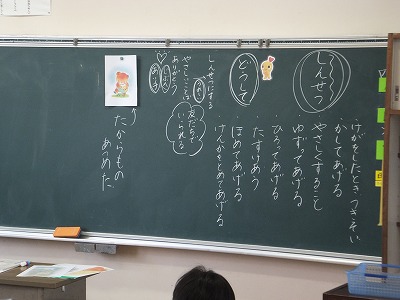 しんせつ
けがをしたとき つきそい
かしてあげる
やさしくすること
ゆずってあげる
ひろってあげる
たすけあう
ほめてあげる
けんかをとめてあげる
どうして
しんせつにする
やさしいことば
ありがとう
友だちで
いられる
たからもの
あつめた